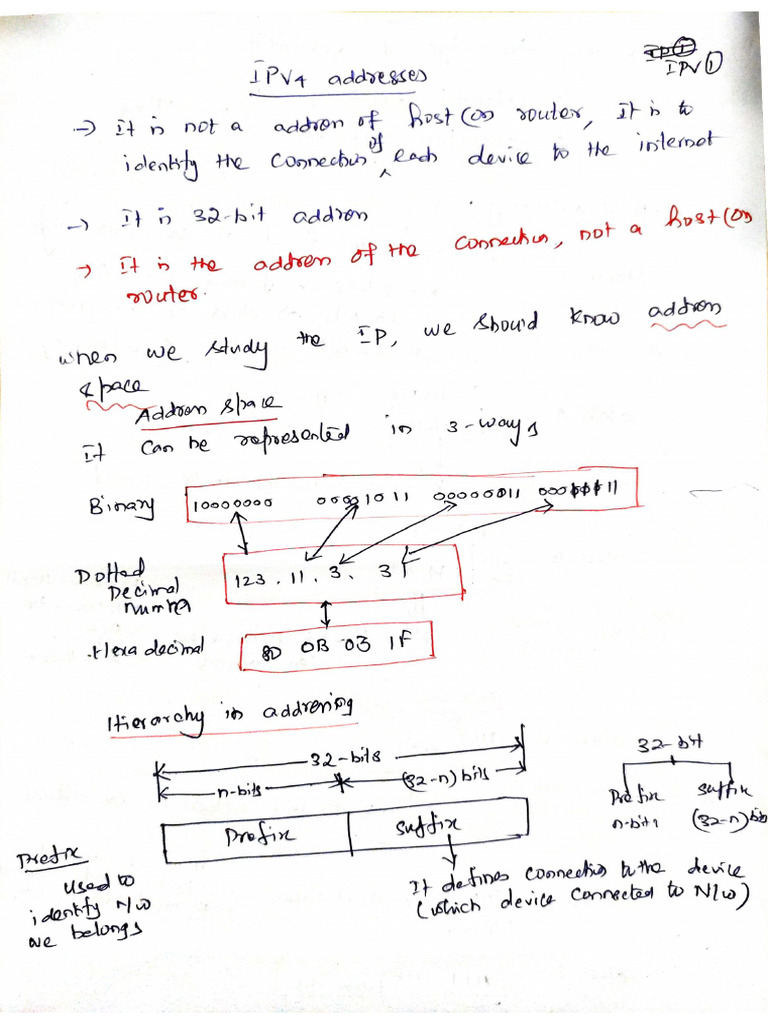 IPV①
IPV4 addresses
→ It is not a address of host (or) router, It is to
identify the connection of each device to the internet
→ It is 32-bit address
→ It is the address of the connection, not a host (or)
router.
When we study the IP, we should know address
space
Address space
It can be represented in 3-ways
Binary 10000000 00001011 00000011
Dotted Decimal Number 123. 11. 3. 31
Hexa decimal 8D 0B 03 1F
Hierarchy in addressing
32-bits
n-bits (32-n) bits
Prefix Suffix
32-bit
Prefix Suffix
n-bits (32-n) bits
Prefix
used to
identify N/w
we belongs
It defines connection to the device
(which device connected to N/w)